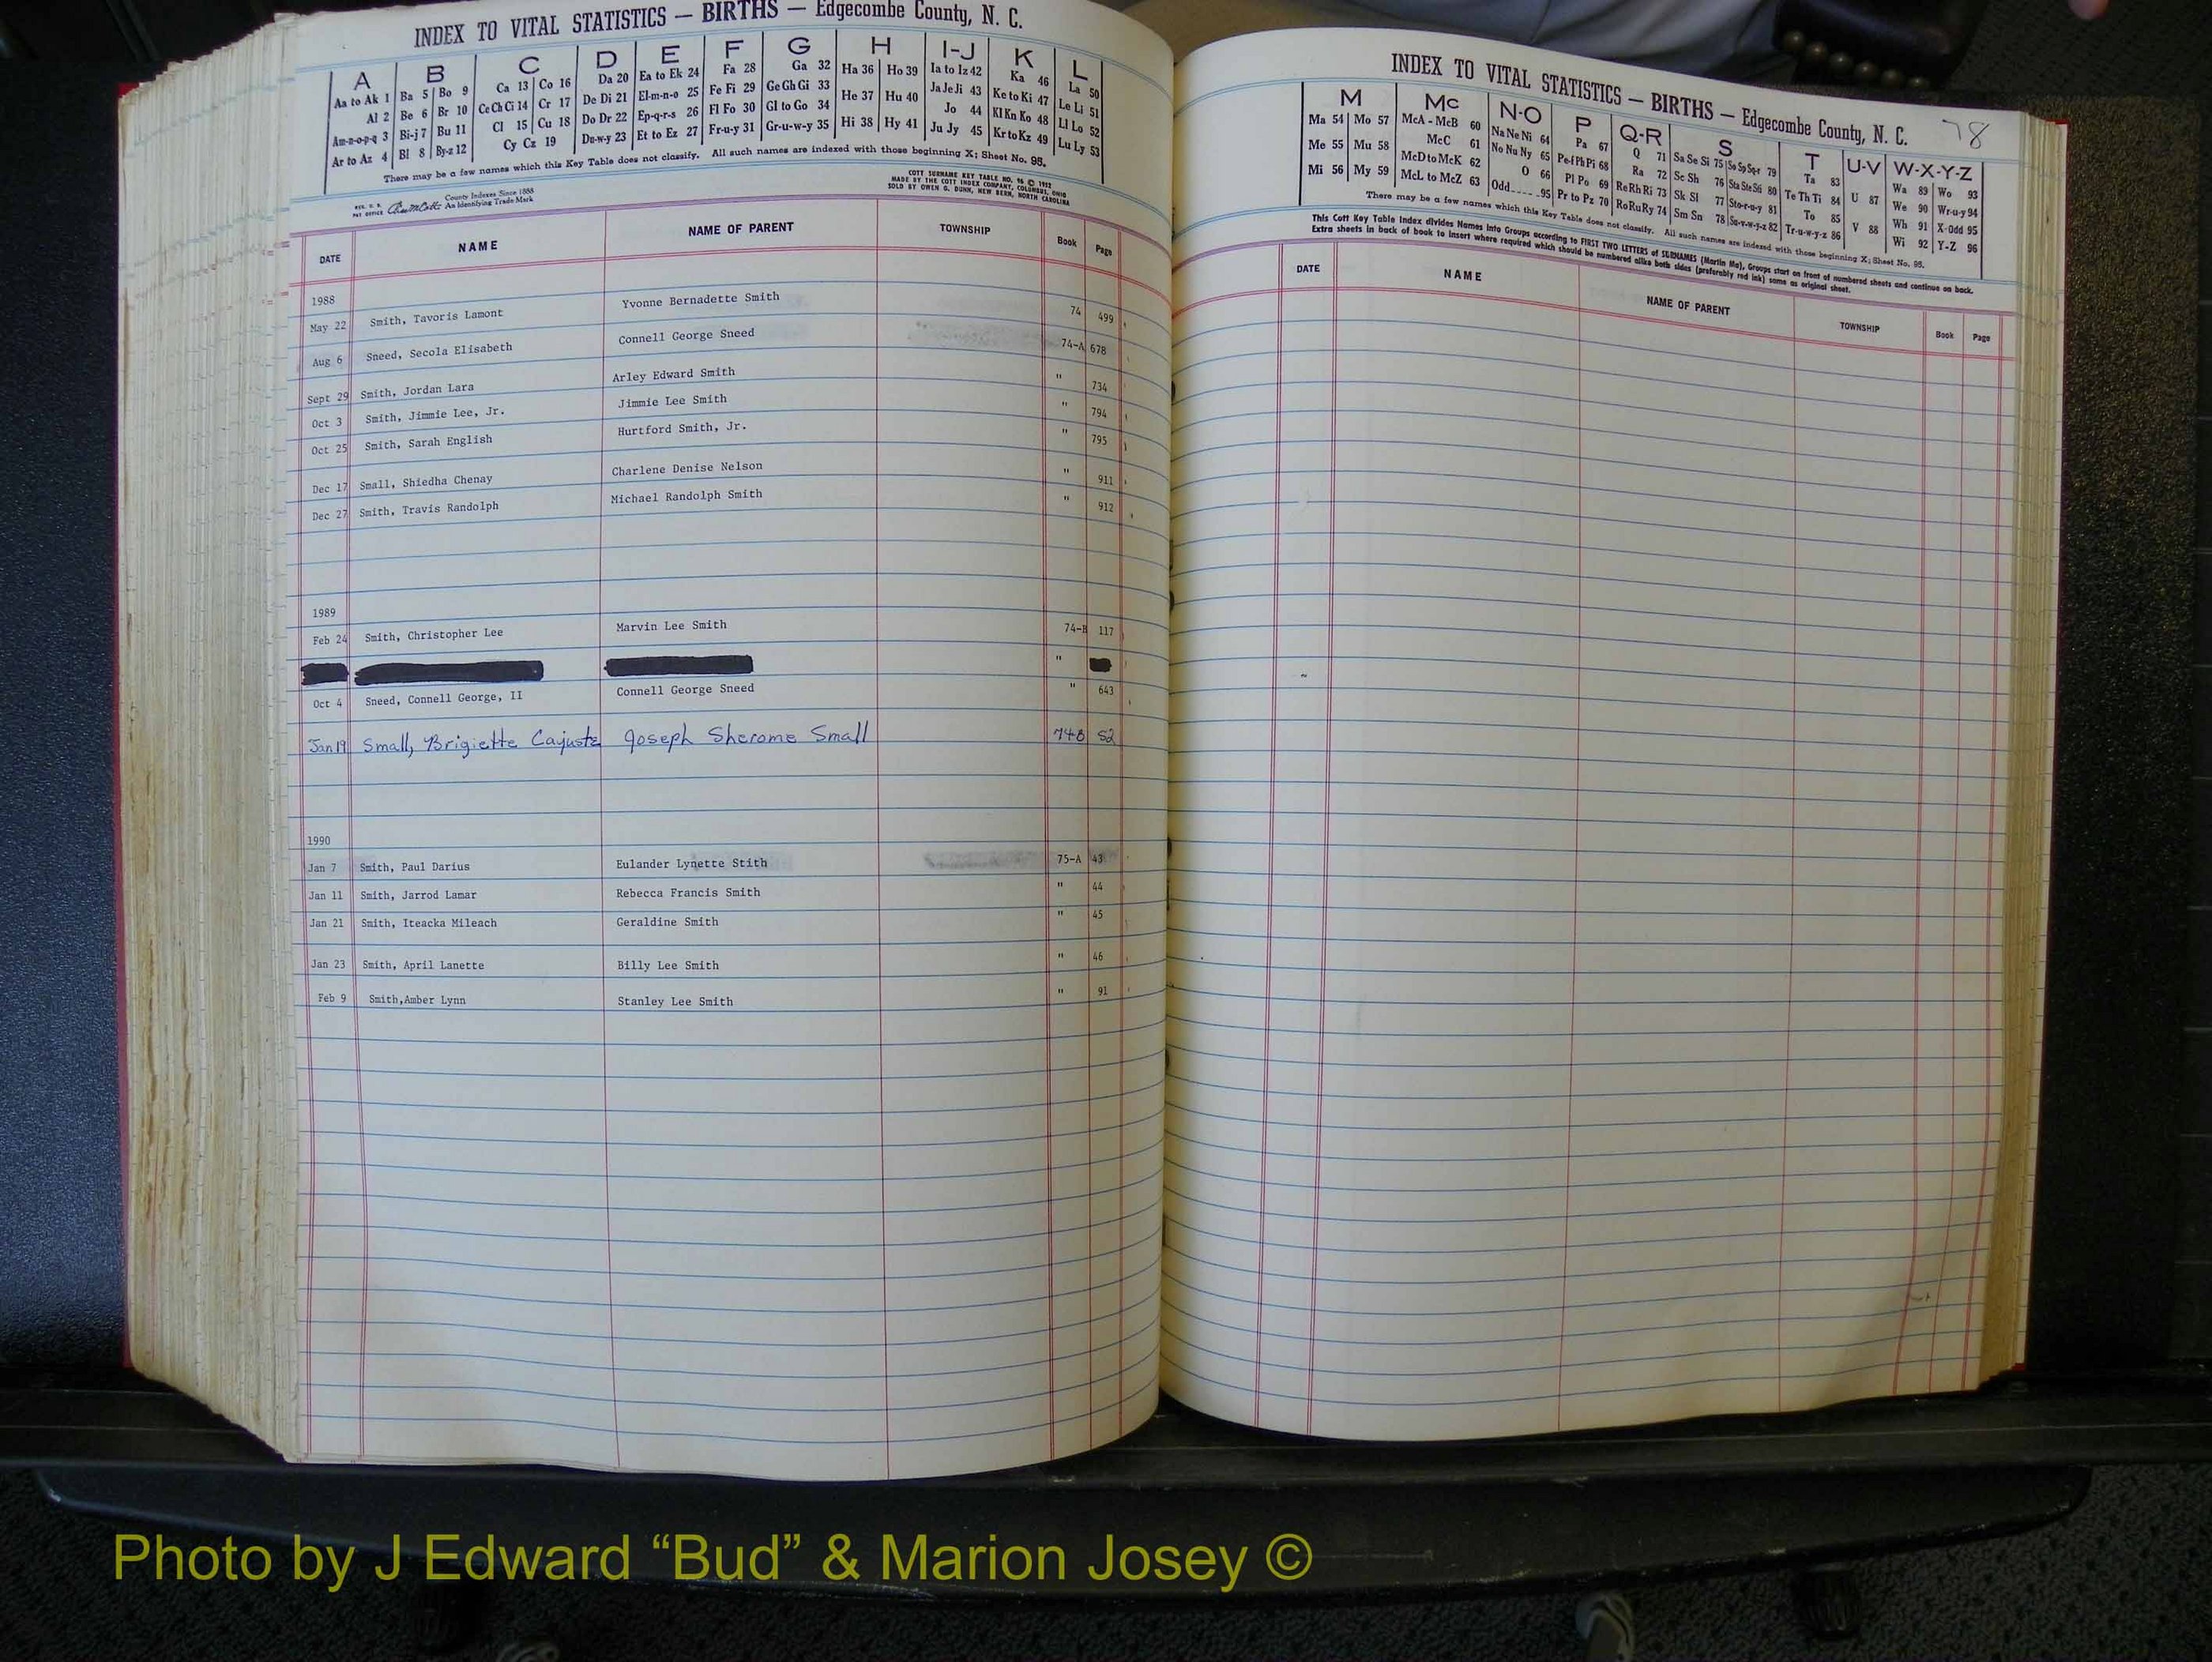 INDEX TO VITAL STATISTICS — BIRTHS — Edgecombe County, N. C.
A B C D E F G H I-J K L
Aa to Ak 1 Ba 5 Bo 9 Ca 13 Co 16 Da 20 Ea to Ek 24 Fa 28 Ga 32 Ha 36 Ho 39 Ia to Iz 42 Ka 46 La 50
Al 2 Be 6 Br 10 Ce Ch Ci 14 Cr 17 De Di 21 El-m-n-o 25 Fe Fi 29 Ge Gh Gi 33 He 37 Hu 40 Ja Je Ji 43 Ke to Ki 47 Le Li 51
Am-n-o-p-q 3 Bi-j 7 Bu 11 Cl 15 Cu 18 Do Dr 22 Ep-q-r-s 26 Fl Fo 30 Gl to Go 34 Hi 38 Hy 41 Jo 44 Kl Kn Ko 48 Ll Lo 52
Ar to Az 4 Bl 8 By-z 12 Cy Cz 19 Du-w-y 23 Et to Ez 27 Fr-u-y 31 Gr-u-w-y 35 Ju Jy 45 Kr to Kz 49 Lu Ly 53
There may be a few names which this Key Table does not classify. All such names are indexed with those beginning X; Sheet No. 95.
County Indexes Since 1888
An Identifying Trade Mark
COTT SURNAME KEY TABLE NO. 96 © 1952
MADE BY THE COTT INDEX COMPANY, COLUMBUS, OHIO
SOLD BY OWEN G. DUNN, NEW BERN, NORTH CAROLINA
DATE NAME NAME OF PARENT TOWNSHIP Book Page
1988
May 22 Smith, Tavoris Lamont Yvonne Bernadette Smith 74 499
Aug 6 Sneed, Secola Elisabeth Connell George Sneed 74-A 678
Sept 29 Smith, Jordan Lara Arley Edward Smith " 734
Oct 3 Smith, Jimmie Lee, Jr. Jimmie Lee Smith " 794
Oct 25 Smith, Sarah English Hurtford Smith, Jr. " 795
Dec 17 Small, Shiedha Chenay Charlene Denise Nelson " 911
Dec 27 Smith, Travis Randolph Michael Randolph Smith " 912
1989
Feb 24 Smith, Christopher Lee Marvin Lee Smith 74-B 117
"
Oct 4 Sneed, Connell George, II Connell George Sneed " 643
Jan 19 Small, Brigiette Cajuste Joseph Sherome Small 74B 52
1990
Jan 7 Smith, Paul Darius Eulander Lynette Stith 75-A 43
Jan 11 Smith, Jarrod Lamar Rebecca Francis Smith " 44
Jan 21 Smith, Iteacka Mileach Geraldine Smith " 45
Jan 23 Smith, April Lanette Billy Lee Smith " 46
Feb 9 Smith,Amber Lynn Stanley Lee Smith " 91
INDEX TO VITAL STATISTICS — BIRTHS — Edgecombe County, N. C. 78
M Mc N-O P Q-R S T U-V W-X-Y-Z
Ma 54 Mo 57 McA - McB 60 Na Ne Ni 64 Pa 67 Q 71 Sa Se Si 75 So Sp Sq-r 79 Ta 83 U 87 Wa 89 Wo 93
Me 55 Mu 58 McC 61 No Nu Ny 65 Pe-f Ph Pi 68 Ra 72 Sc Sh 76 Sta Ste Sti 80 Te Th Ti 84 V 88 We 90 Wr-u-y 94
Mi 56 My 59 McD to McK 62 O 66 Pl Po 69 Re Rh Ri 73 Sk Sl 77 Sto-r-u-y 81 To 85 Wh 91 X-Odd 95
McL to McZ 63 Odd 95 Pr to Pz 70 Ro Ru Ry 74 Sm Sn 78 Su-v-w-y-z 82 Tr-u-w-y-z 86 Wi 92 Y-Z 96
There may be a few names which this Key Table does not classify. All such names are indexed with those beginning X; Sheet No. 95.
This Cott Key Table Index divides Names into Groups according to FIRST TWO LETTERS of SURNAMES (Martin Ma), Groups start on front of numbered sheets and continue on back.
Extra sheets in back of book to insert where required which should be numbered alike both sides (preferably red ink) same as original sheet.
DATE NAME NAME OF PARENT TOWNSHIP Book Page
Photo by J Edward “Bud” & Marion Josey ©